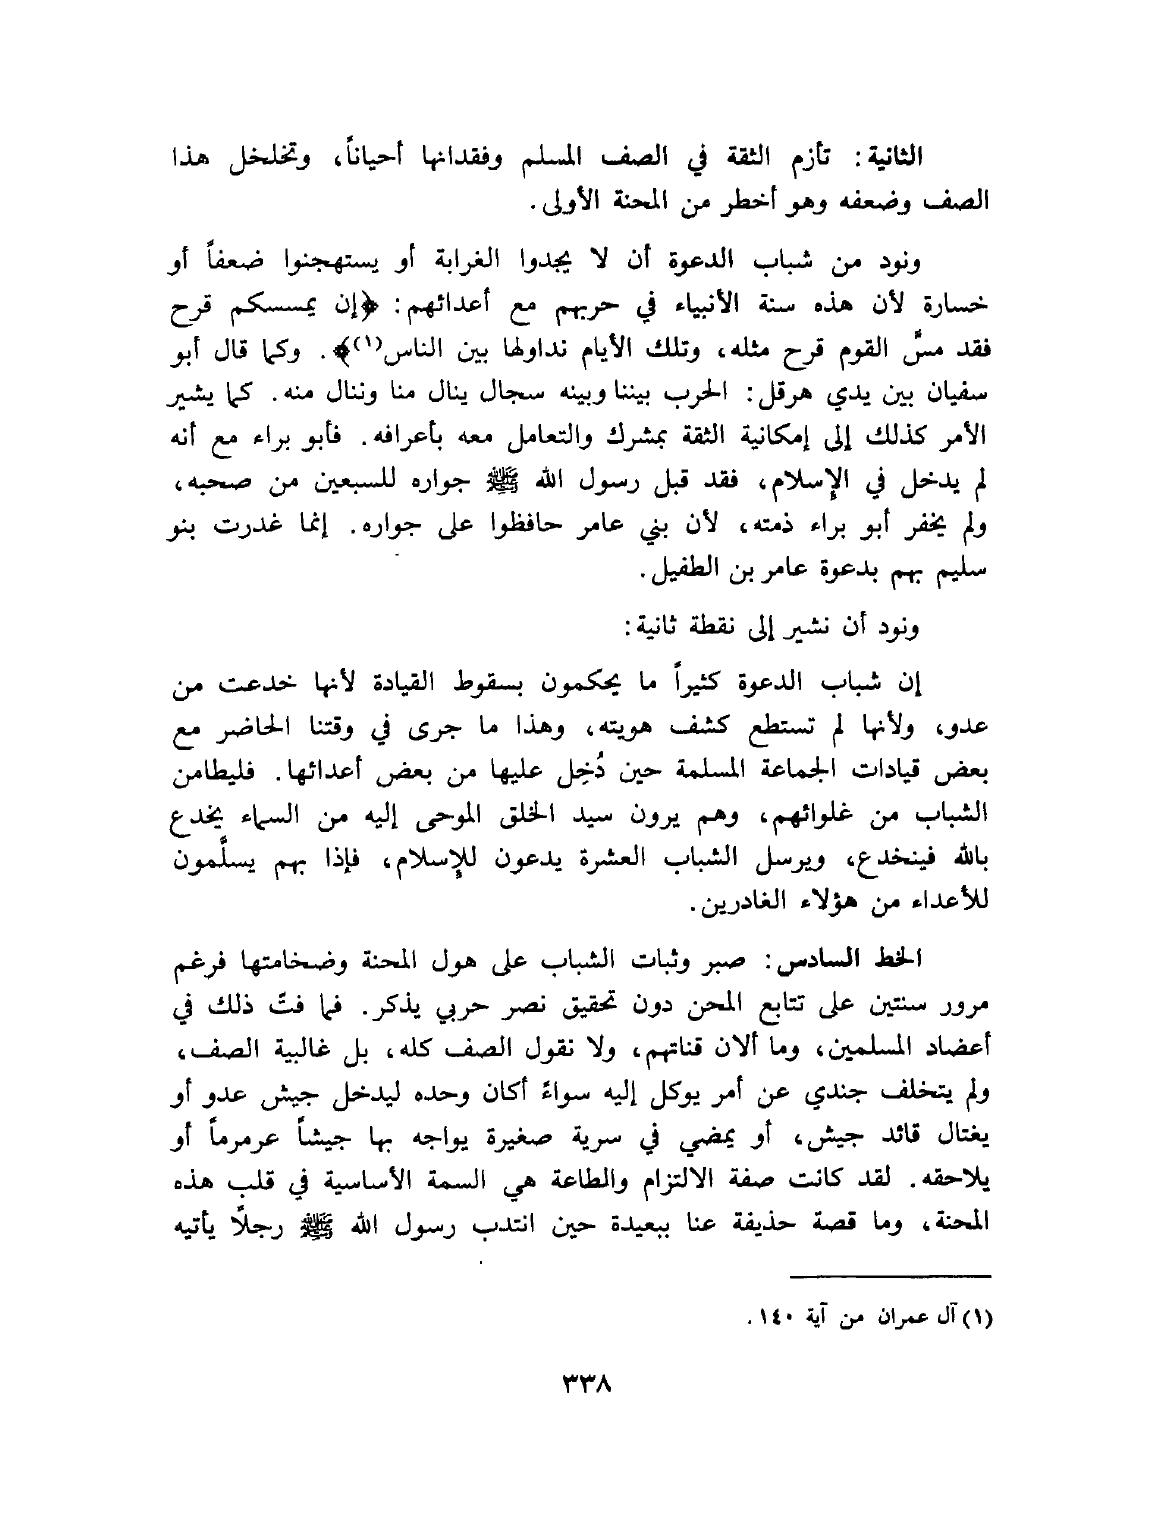 الثانية: تأزم الثقة في الصف المسلم وفقدانها أحياناً، وتخلخل هذا
الصف وضعفه وهو أخطر من المحنة الأولى.
ونود من شباب الدعوة أن لا يجدوا الغرابة أو يستهجنوا ضعفاً أو
خسارة لأن هذه سنة الأنبياء في حربهم مع أعدائهم: ﴿إن يمسسكم قرح
فقد مسَّ القوم قرح مثله، وتلك الأيام نداولها بين الناس(١)﴾. وكما قال أبو
سفيان بين يدي هرقل: الحرب بيننا وبينه سجال ينال منا وننال منه. كما يشير
الأمر كذلك إلى إمكانية الثقة بمشرك والتعامل معه بأعرافه. فأبو براء مع أنه
لم يدخل في الإسلام، فقد قبل رسول الله ﷺ جواره للسبعين من صحبه،
ولم يخفر أبو براء ذمته، لأن بني عامر حافظوا على جواره. إنما غدرت بنو
سليم بهم بدعوة عامر بن الطفيل.
ونود أن نشير إلى نقطة ثانية:
إن شباب الدعوة كثيراً ما يحكمون بسقوط القيادة لأنها خدعت من
عدو، ولأنها لم تستطع كشف هويته، وهذا ما جرى في وقتنا الحاضر مع
بعض قيادات الجماعة المسلمة حين دُخِل عليها من بعض أعدائها. فليطامن
الشباب من غلوائهم، وهم يرون سيد الخلق الموحى إليه من السماء يخدع
بالله فينخدع، ويرسل الشباب العشرة يدعون للإسلام، فإذا بهم يسلَّمون
للأعداء من هؤلاء الغادرين.
الخط السادس: صبر وثبات الشباب على هول المحنة وضخامتها فرغم
مرور سنتين على تتابع المحن دون تحقيق نصر حربي يذكر. فما فتّ ذلك في
أعضاد المسلمين، وما ألان قناتهم، ولا نقول الصف كله، بل غالبية الصف،
ولم يتخلف جندي عن أمر يوكل إليه سواءً أكان وحده ليدخل جيش عدو أو
يغتال قائد جيش، أو يمضي في سرية صغيرة يواجه بها جيشاً عرمرماً أو
يلاحقه. لقد كانت صفة الالتزام والطاعة هي السمة الأساسية في قلب هذه
المحنة، وما قصة حذيفة عنا ببعيدة حين انتدب رسول الله ﷺ رجلًا يأتيه
(١) آل عمران من آية ١٤٠.
٣٣٨